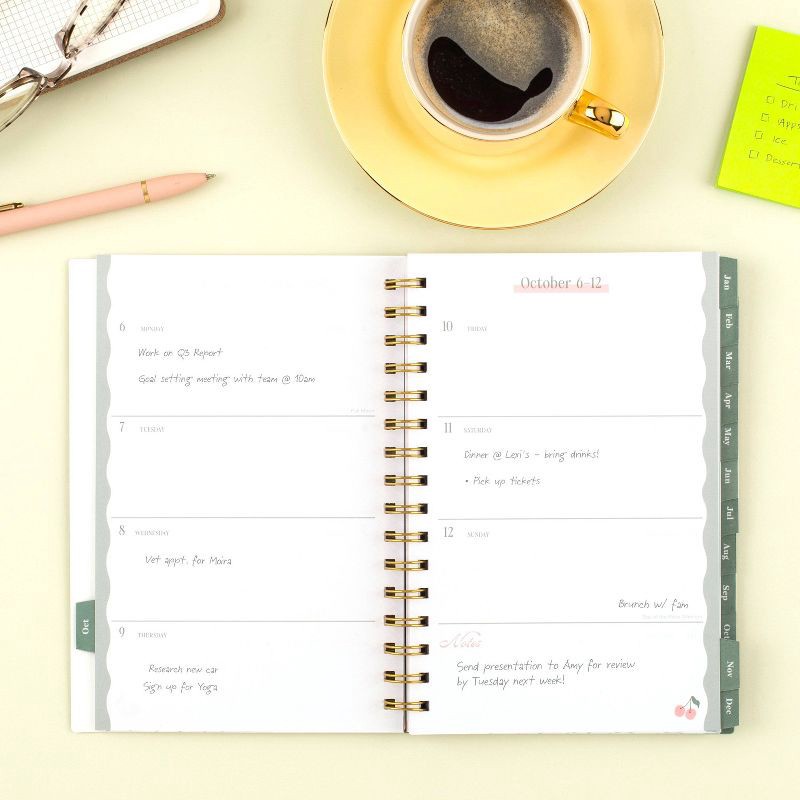 To
Dri
Apps
Ice
Dessert
6 MONDAY
Work on Q3 Report
Goal setting meeting with team @ 10am
7 TUESDAY
8 WEDNESDAY
Vet appt. for Moira
9 THURSDAY
Research new car
Sign up for Yoga
Oct
October 6-12
10 FRIDAY
11 SATURDAY
Dinner @ Lexi's - bring drinks!
• Pick up tickets
12 SUNDAY
Brunch w/ fam
Notes
Send presentation to Amy for review
by Tuesday next week!
Jan
Feb
Mar
Apr
May
Jun
Jul
Aug
Sep
Oct
Nov
Dec